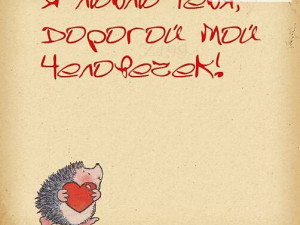 Я люблю тебя,
дорогой мой
Человечек!